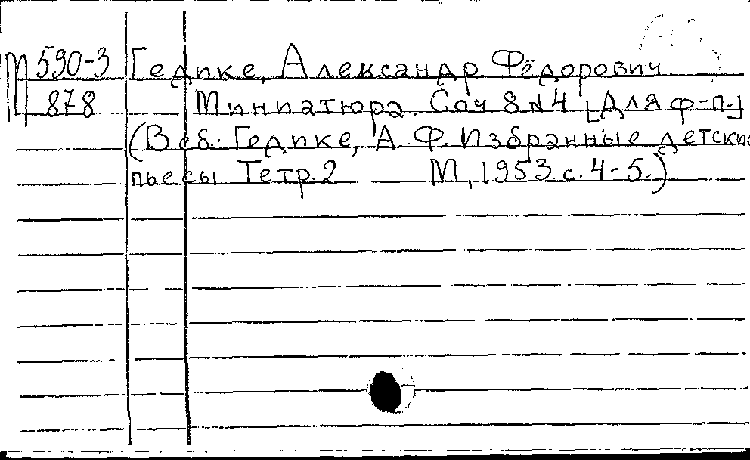 М 590-3 Гедике, Александр Фёдорович
878 Миниатюра. Соч 8 №4 [Для ф-п.]
(В сб.: Гедике, А. Ф. Избранные детские
пьесы Тетр. 2 М, 1953 с. 4-5.)